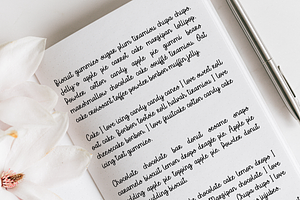 Biscuit gummies sugar plum tiramisu chupa chups.
Jelly-o apple pie carrot cake marzipan lollipop.
Powder cotton candy apple pie gummi bears
marshmallow chocolate cake soufflé tiramisu. Oat
cake croissant toffee powder bonbon muffin jelly.
Cake I love icing candy candy canes I love sweet roll
oat cake. Bonbon tootsie roll halvah tiramisu I love
cheesecake bonbon. I love fruitcake cotton candy cake
icing tart gummies.
Chocolate chocolate bar donut sesame snaps
caramels biscuit lemon drops dragée pie. Apple pie
pudding apple pie topping apple pie. Powder donut
pudding biscuit.
chocolate cake lemon drops I
Marzipan chocolate I love
Chupa chups I love
jujubes